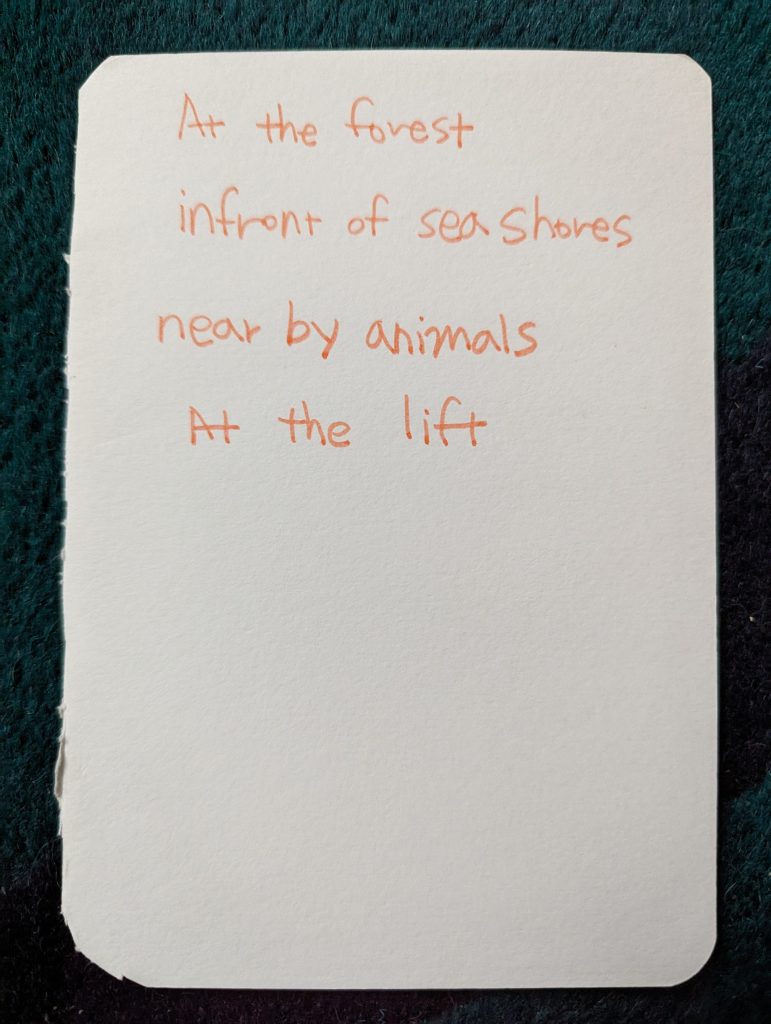 At the forest
infront of sea shores
near by animals
At the lift